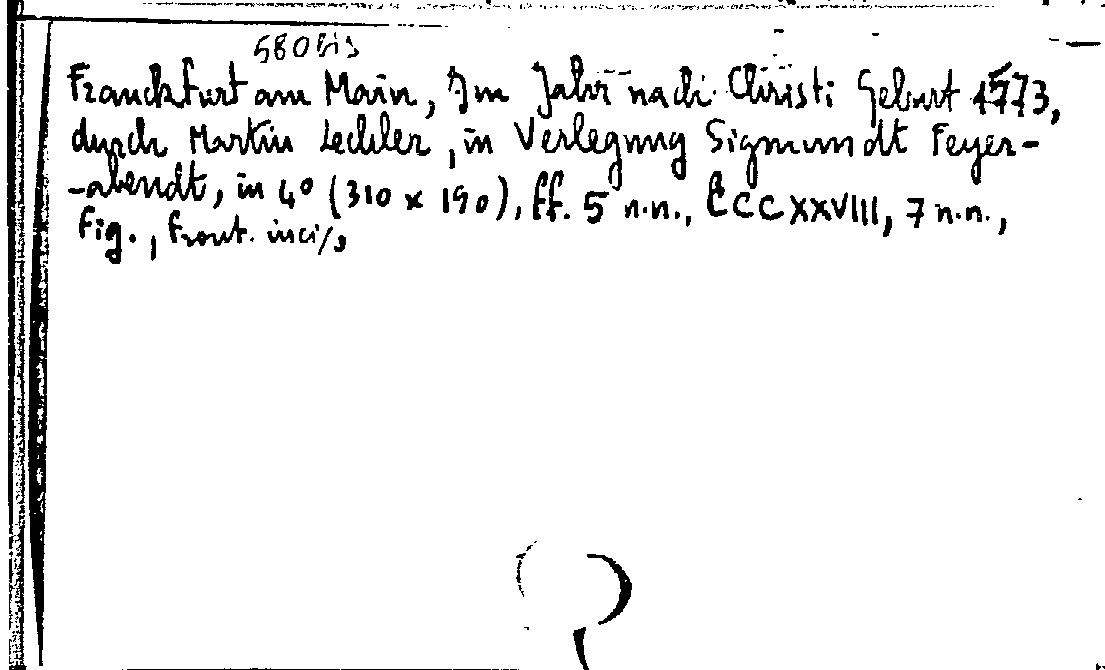 580 bis
Franckfurt am Main, Im Jahr nach Christi Geburt 1573,
durch Martin Lechler, in Verlegung Sigmundt Feyer-
-abendt, in 4° (310 x 190), ff. 5 n.n., CCCXXVIII, 7 n.n.,
fig., front. inciso